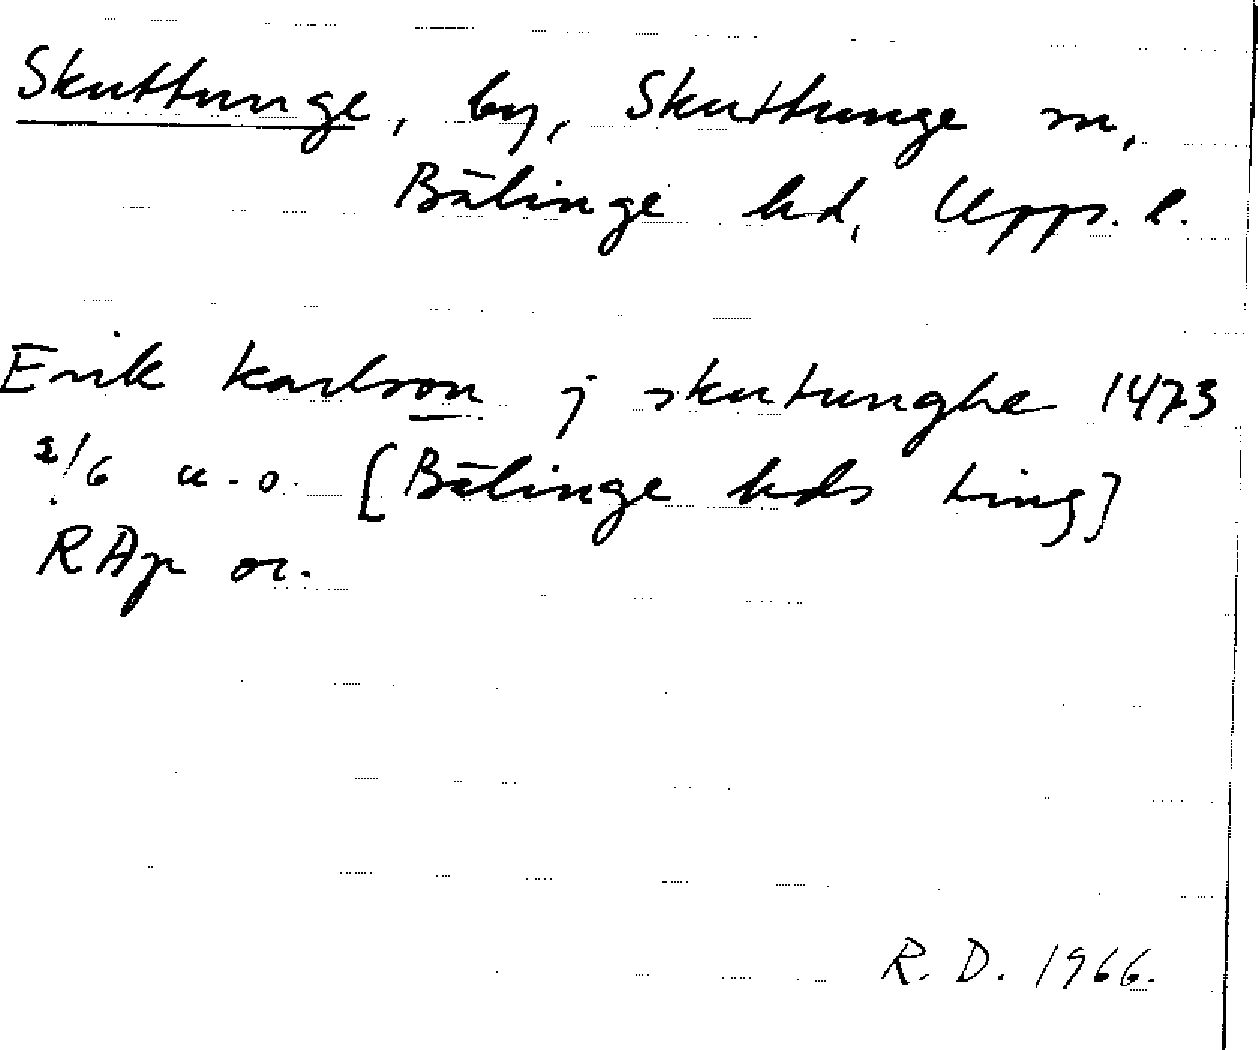 Skuttunge, by, Skuttunge sn,
Bälinge hd, Upps. l.
Erik karlson j skutunghe 1473
2/6 u.o. [Bälinge hds ting]
RAp or.
R. D. 1966.